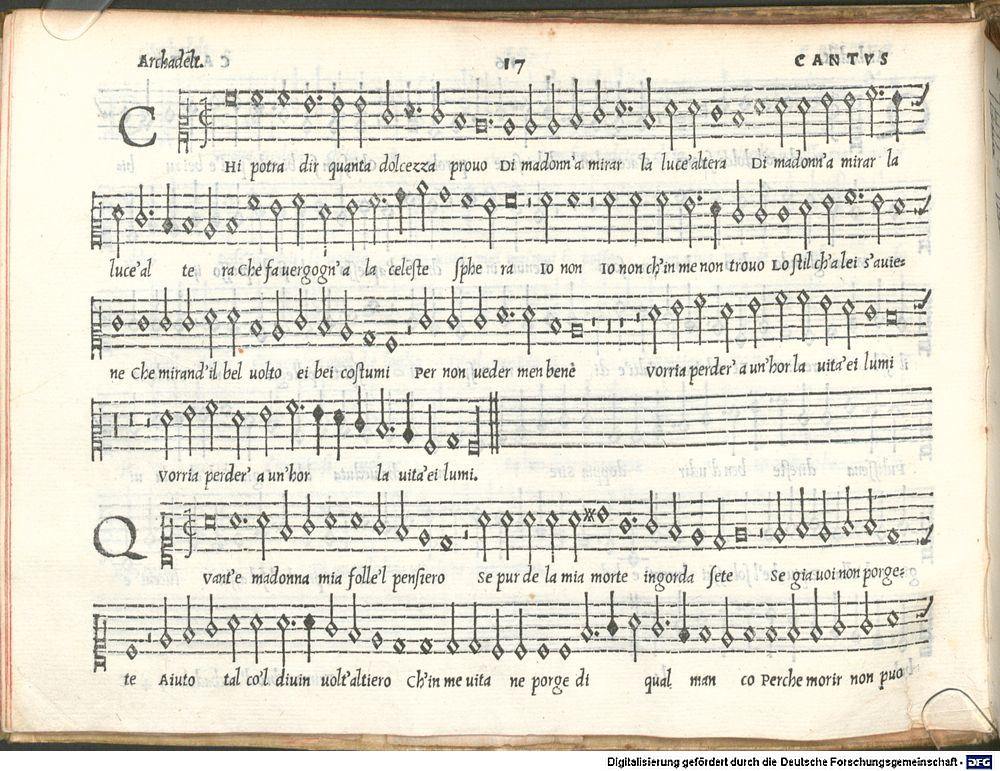 Archadelt. 17 CANTVS
CHi potra dir quanta dolcezza prouo Di madonn'a mirar la luce'altera Di madonn'a mirar la
luce'al te ra Che fa uergogn'a la celeste sphe ra Io non Io non ch'in me non trouo Lo stil ch'a lei s'auie=
ne Che mirand'il bel uolto ei bei costumi Per non ueder men benè Vorria perder'a un'hor la uita'ei lumi
Vorria perder'a un'hor la uita'ei lumi.
QVant'e madonna mia folle'l pensiero Se pur de la mia morte ingorda sete Se gia uoi non porge=
te Aiuto tal co'l diuin uolt'altiero Ch'in me uita ne porge di qual man co Perche morir non puo
Digitalisierung gefördert durch die Deutsche Forschungsgemeinschaft - DFG